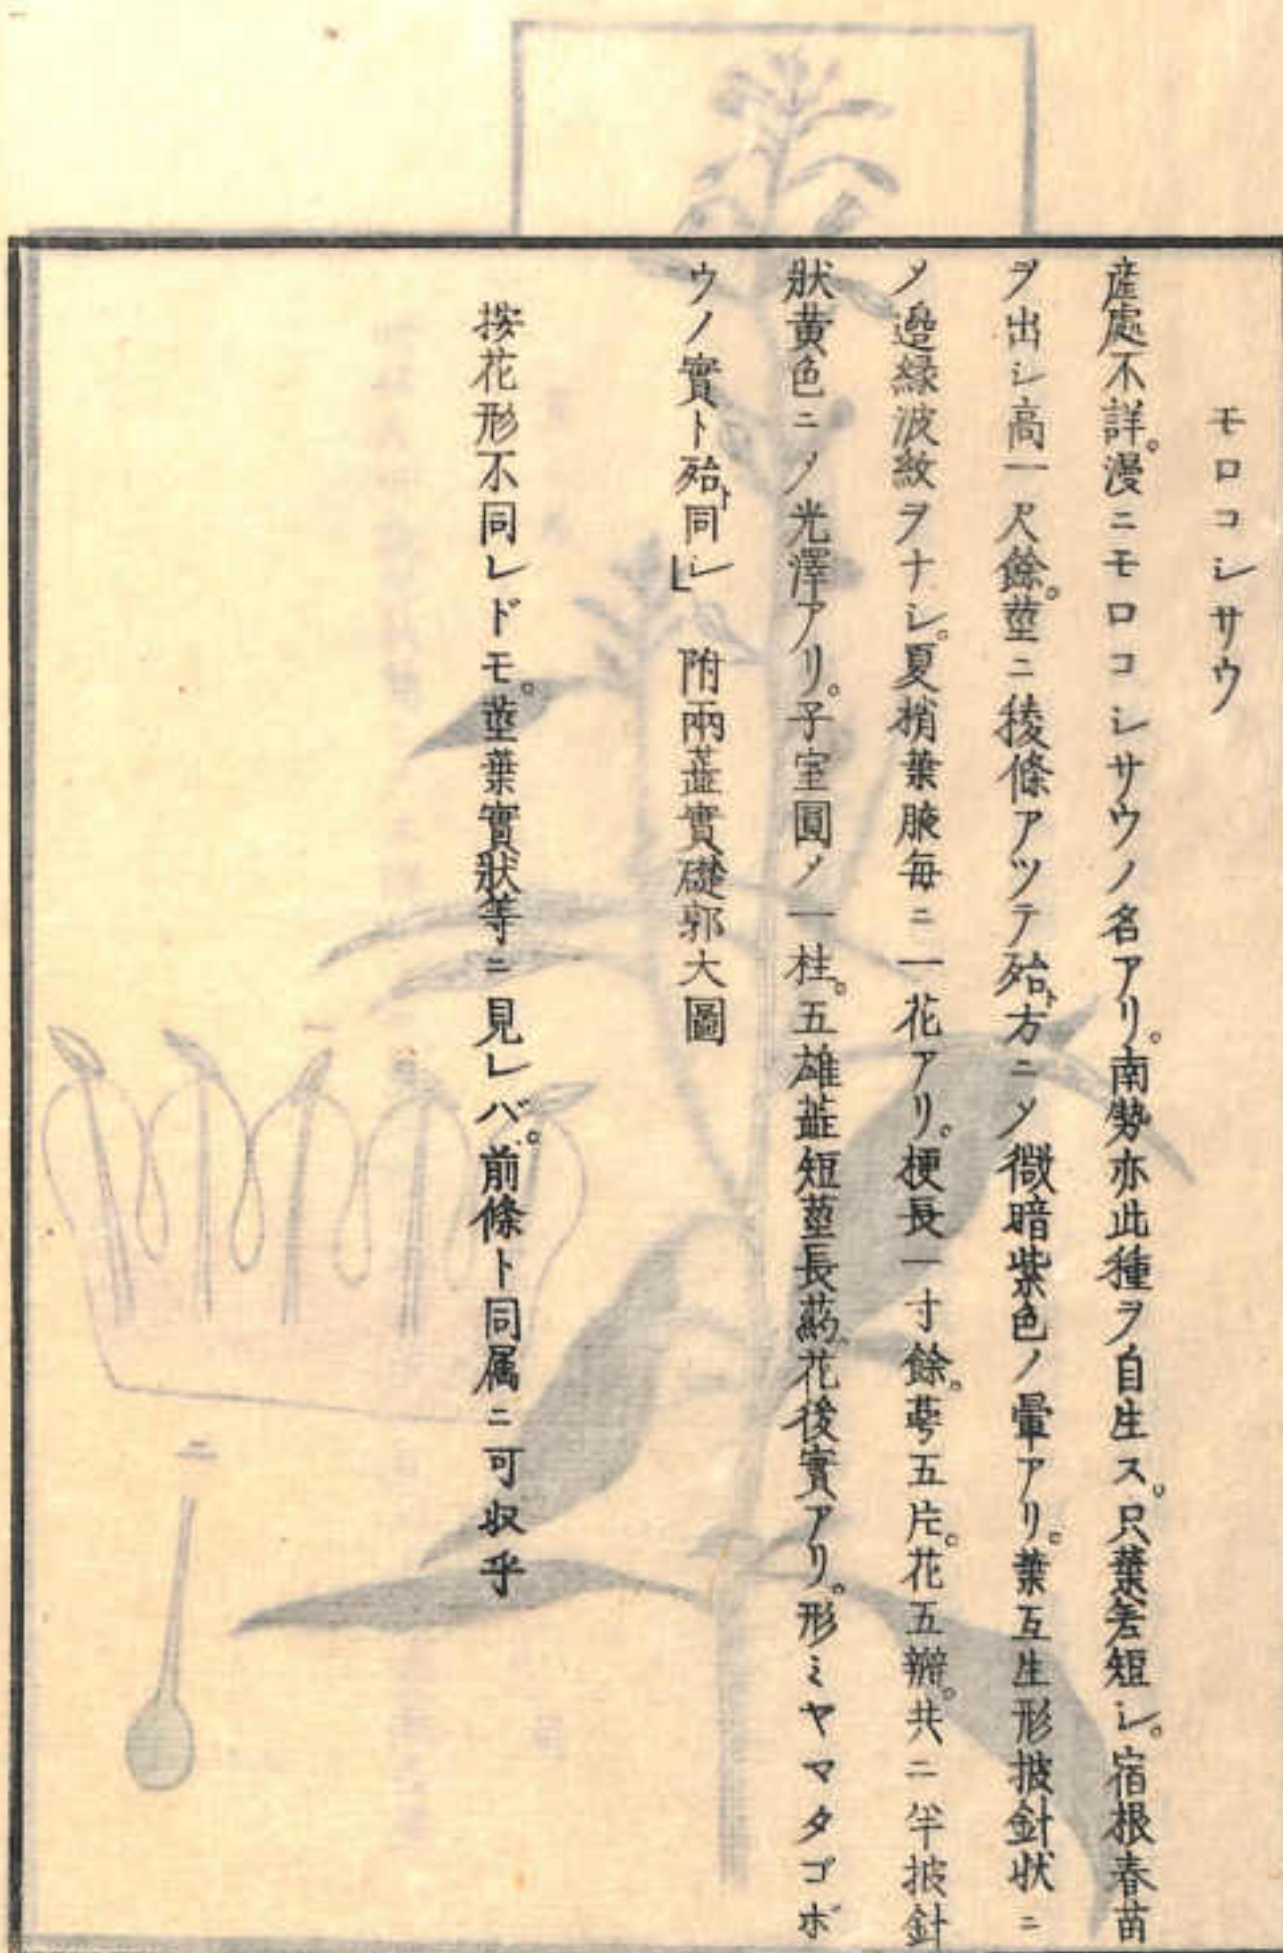 モロコシサウ
産處不詳。漫ニモロコシサウノ名アリ。南勢亦此種ヲ自生ス。只葉差短シ。宿根春苗
ヲ出シ高一尺餘。莖ニ稜條アツテ殆ト方ニメ微暗紫色ノ暈アリ。葉互生形披針状ニ
メ邉緣波紋ヲナシ。夏梢葉腋毎ニ一花アリ。梗長一寸餘。萼五片。花五瓣。共ニ半披針
狀黄色ニメ光澤アリ。子室圓メ一柱。五雄蕋短莖長葯。花後實アリ。形ミヤマタゴボ
ウノ實ト殆ト同シ」 附兩蕋實礎郭大圖
按花形不同レドモ。莖葉實狀等ニ見レバ。前條ト同属ニ可収乎
一
二